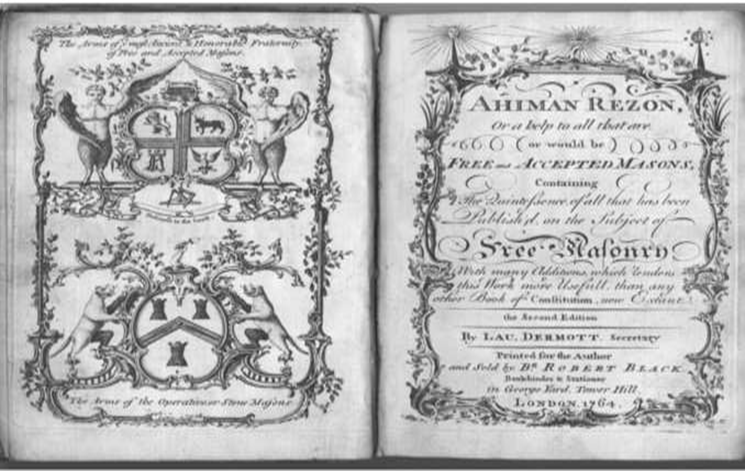 The Arms of y.e most Ancient & Honorable Fraternity,
of Free and Accepted Masons.
The Arms of the Operative or Stone Masons.
AHIMAN REZON,
Or a help to all that are
(or would be)
FREE and ACCEPTED MASONS,
Containing
The Quintessence of all that has been
Publish'd on the Subject of
Free Masonry
With many Additions, which renders
this Work more Usefull, than any
other Book of Constitution, now Extant.
the Second Edition
By LAU. DERMOTT. Secretary
Printed for the Author
and Sold by Br. ROBERT BLACK
Bookbinder & Stationer
in George Yard, Tower Hill,
LONDON, 1764.